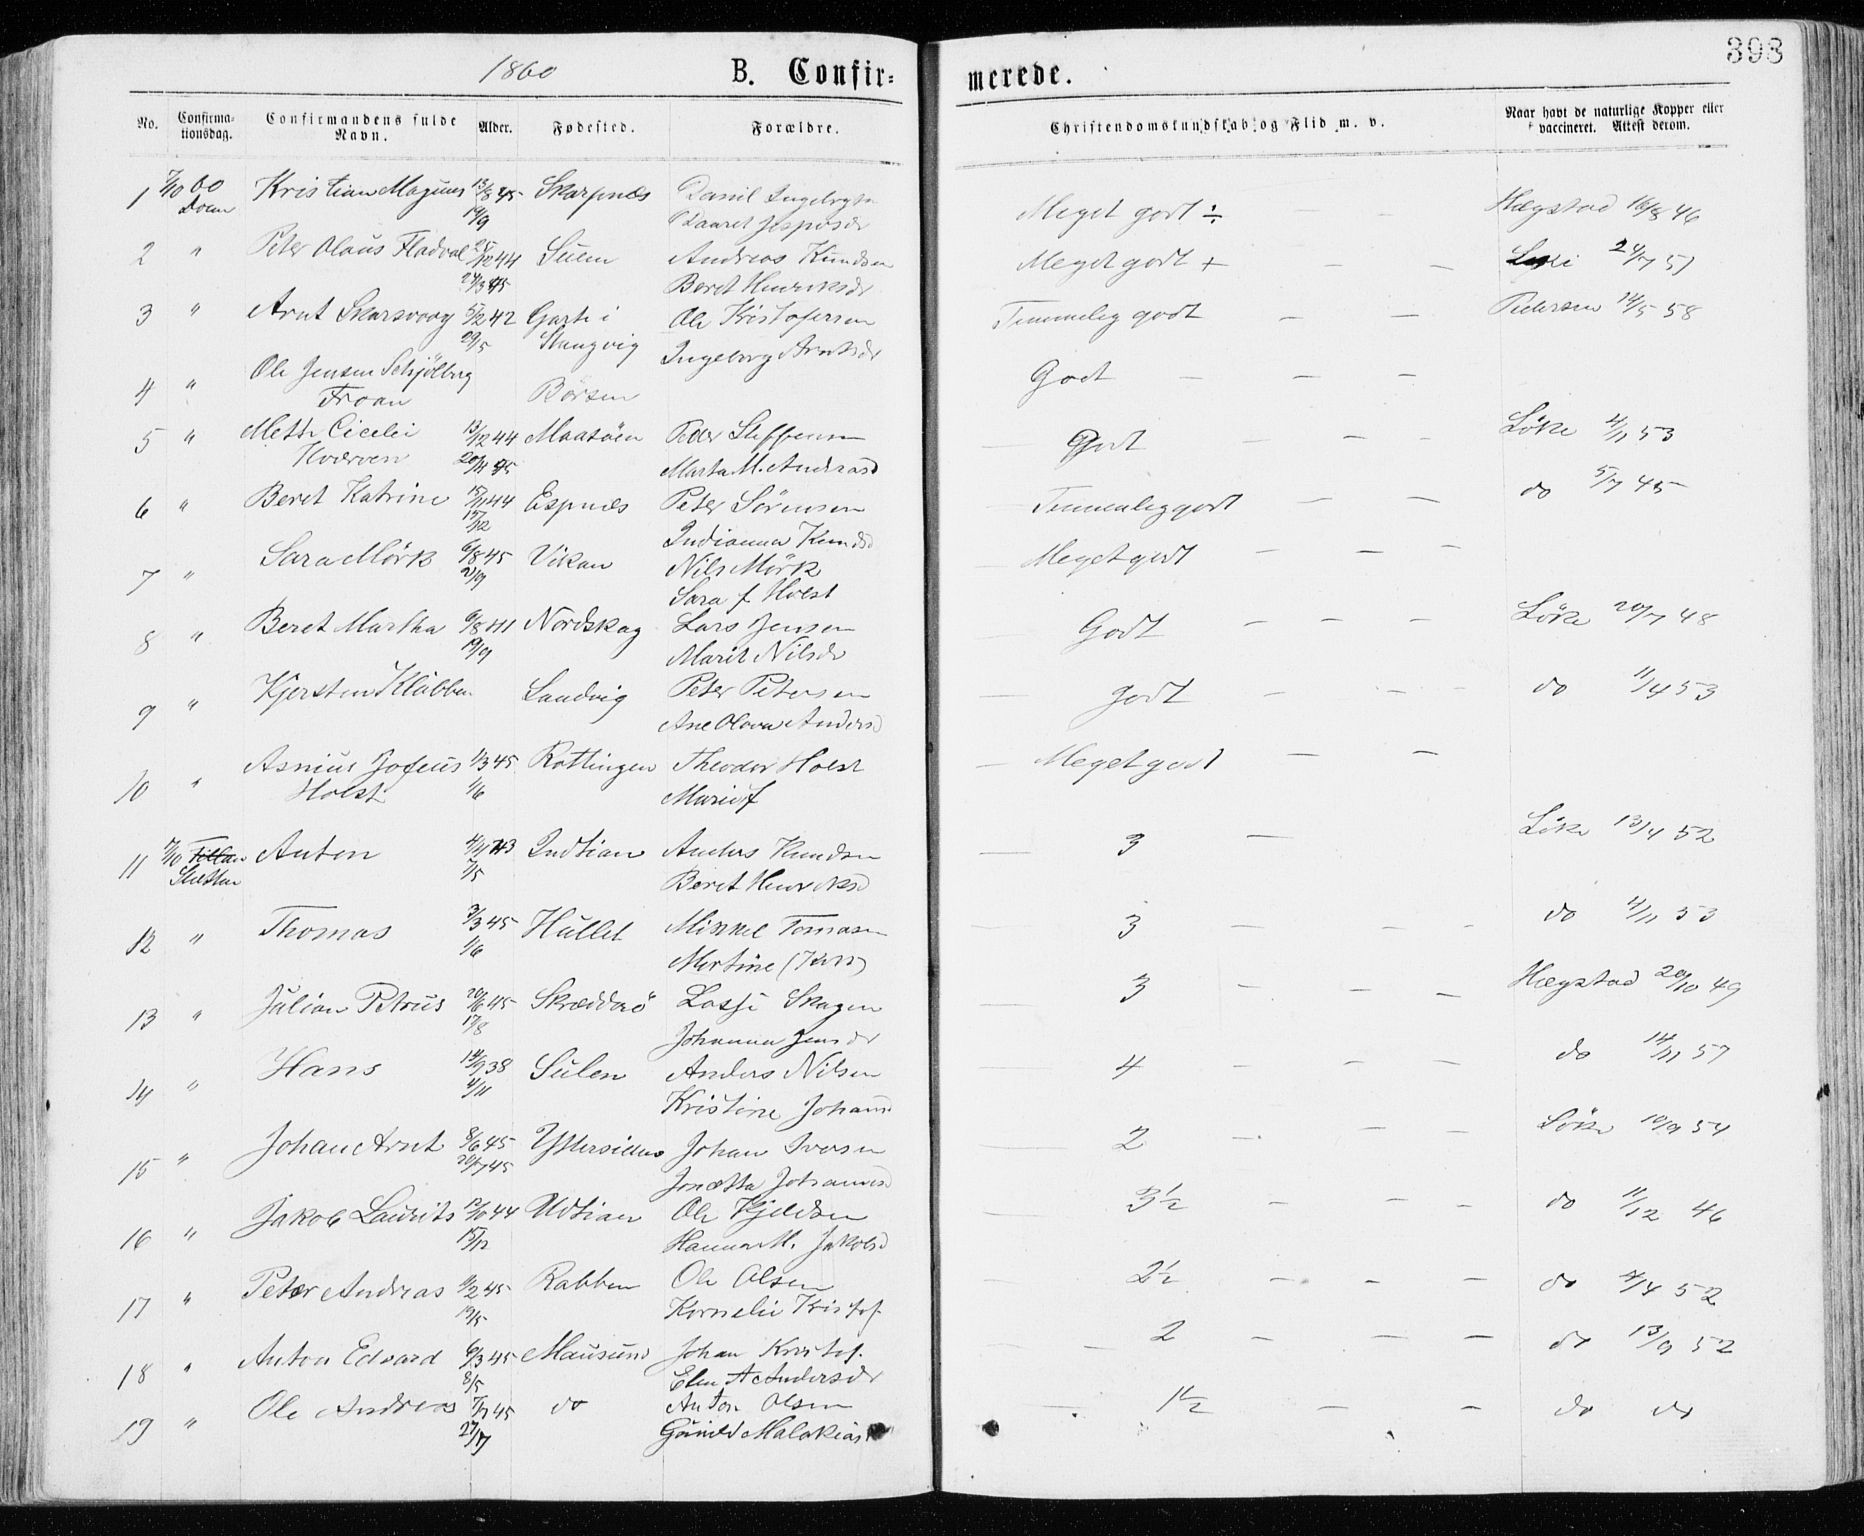 1860 B. Confir= merede. 398
No. Confirma-tionsdag. Confirmandens fulde Navn. Alder. Fødested. Forældre. Christendomskundskab og Flid m. v. Naar havt de naturlige Kopper eller vaccineret. Attest derom.
1 7/10 60 Kristian Magnus 13/8 45 Skarpnes Daniel Meget godt ÷ — — Hægstad 16/8 46
19/9
2 " Peter Olaus Fladval 12 44 Sulen Andreas Knudsen Meget godt + — — 24/7 51
24/3 45 Beret Henriksdr
3 " Arnt Skarsvaag 5/2 42 Garte i Ole Kristofersen Temmelig godt — — Pedersen 14/5 58
29/5 Stengvig Ingeborg Arntsdr
4 " Ole Jensen Schjölberg Börsen Godt — — —
Froan
5 " Mette Cicelie 13/12 44 Maasöen Peder Steffensen — Godt — — — Löke 4/11 53
Kværven 20/4 45 Marta M. Andreasd
6 " Beret Katrine 15/11 44 Espnes Peter Sörensen — Temmelig godt — — do 5/7 45
15/12 Indianna Knudsd
7 " Sara Mörk 6/8 45 Vikan Nils Mörk — Meget godt — — —
21/9 Sara f Holst
8 " Beret Martha 9/8 41 Nordskag Lars Jensen — Godt — — — — Löke 20/7 48
19/9 Marit Nilsdr
9 " Kjersten Klubben Sandvig Peter Petersen — godt — — — do 11/4 53
Ane Olava Andersd
10 " Asmus Jofeus 1/3 45 Rottingen Theodor Holst — Meget godt — —
Holst 1/6 Maria f
11 7/10 Tillan Anton 4/11 43 Indtian Anders Knudsen — 3 — Löke 13/4 52
Sletten 7/5 Beret Henriksd
12 " Thomas 3/3 45 Hallet Mikkel Tomasen — 3 — — — do 4/11 53
1/6 Martine
13 " Julian Petrus 20/6 45 Skreddarö Skagen — 3 — — — Hægstad 20/10 49
17/8 Johanna Jensdr
14 " Hans 14/9 38 Sulen Anders Nilsen — 4 — — — do 14/11 57
4/11 Kristine Johansd
15 " Johan Arnt 8/6 45 Yttersiden Johan Iversen — 2 — — — Löke 10/9 54
20/7 45 Jonetta Johannesd
16 " Jakob Laurits 12/10 44 Udtian Ole Kjeldsen 3½ — — — do 11/12 46
15/12 Hanna M. Jakobsd
17 " Peter Andreas 9/2 45 Rabben Ole Olsen — 2½ — — — do 4/4 52
12/5 Kornelie Kristof.
18 " Anton Edvard 6/3 45 Mausund Johan Kristof. — 2 — — — do 13/9 52
8/5 Elen A Andersdr
19 " Ole Andreas 7/7 45 do Anton Olsen — 1½ — — do do
27/7 Gunild Malakias